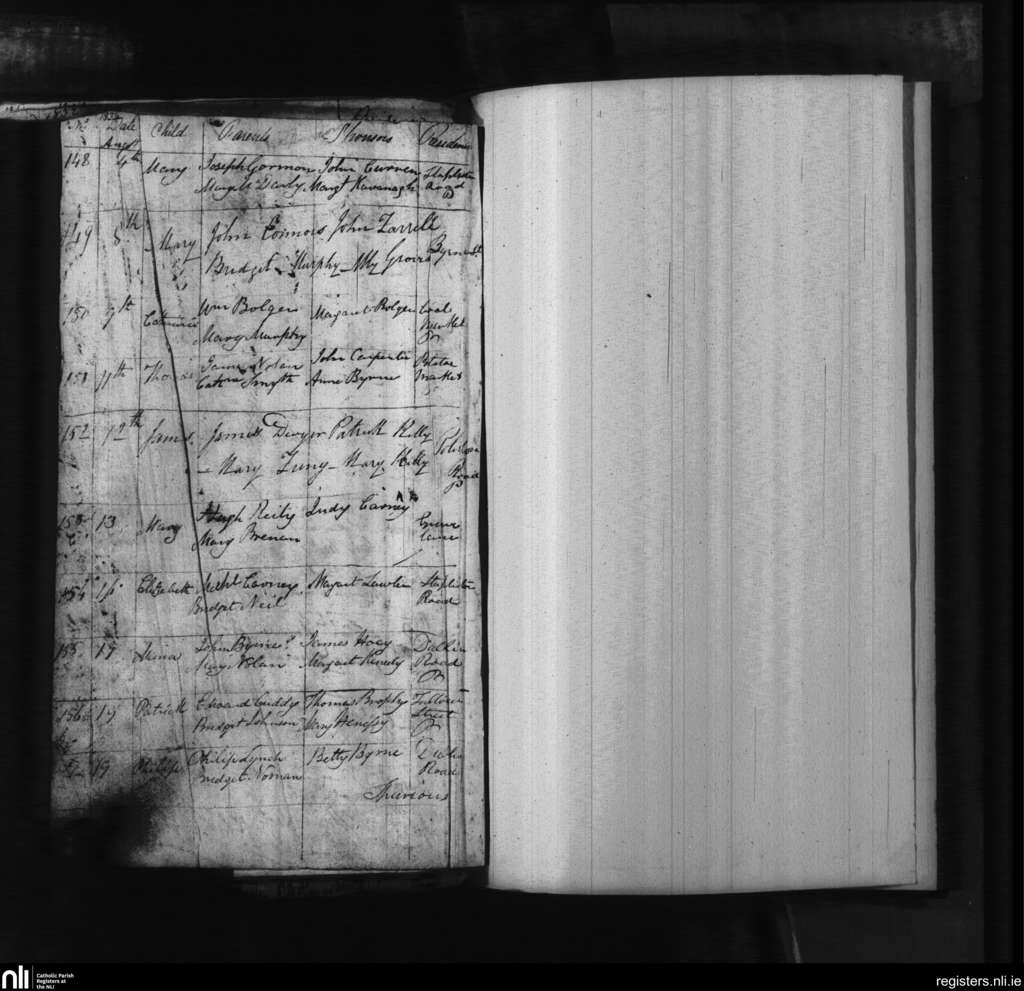 No Date Child Parents Sponsors Residence
Augt
148 4th Mary Joseph Gorman John Curren Stapleton
Margt Darby Margt Kavanagh Road
149 5th Mary John Connors John Farrell
Bridget Murphy My Byrne St
150 9th Catherine Wm Bolger Margaret Bolger Coal
Mary Murphy Market
151 11th Thomas James Nolan John Carpenter Potatoe
Cathne Smyth Anne Byrne Market
152 12th James James Dwyer Patrick Kelly
Mary Mary Kelly Road
153 13 Mary Hugh Reily Judy Carney
Mary Brenan Lane
154 Elizabeth Michl Carney Margaret Lawler Stapleton
Bridget Neil Road
155 19 John Byrne James Hoey Dublin
Mary Nolan Margaret Road
156 19 Patrick Edward Cuddy Thomas Brophy Tullow
Bridget Johnson Mary Henesy Street
19 Philip Philip Lynch Betty Byrne Dublin
Bridget Road
nli
Catholic Parish
Registers at
the NLI
registers.nli.ie